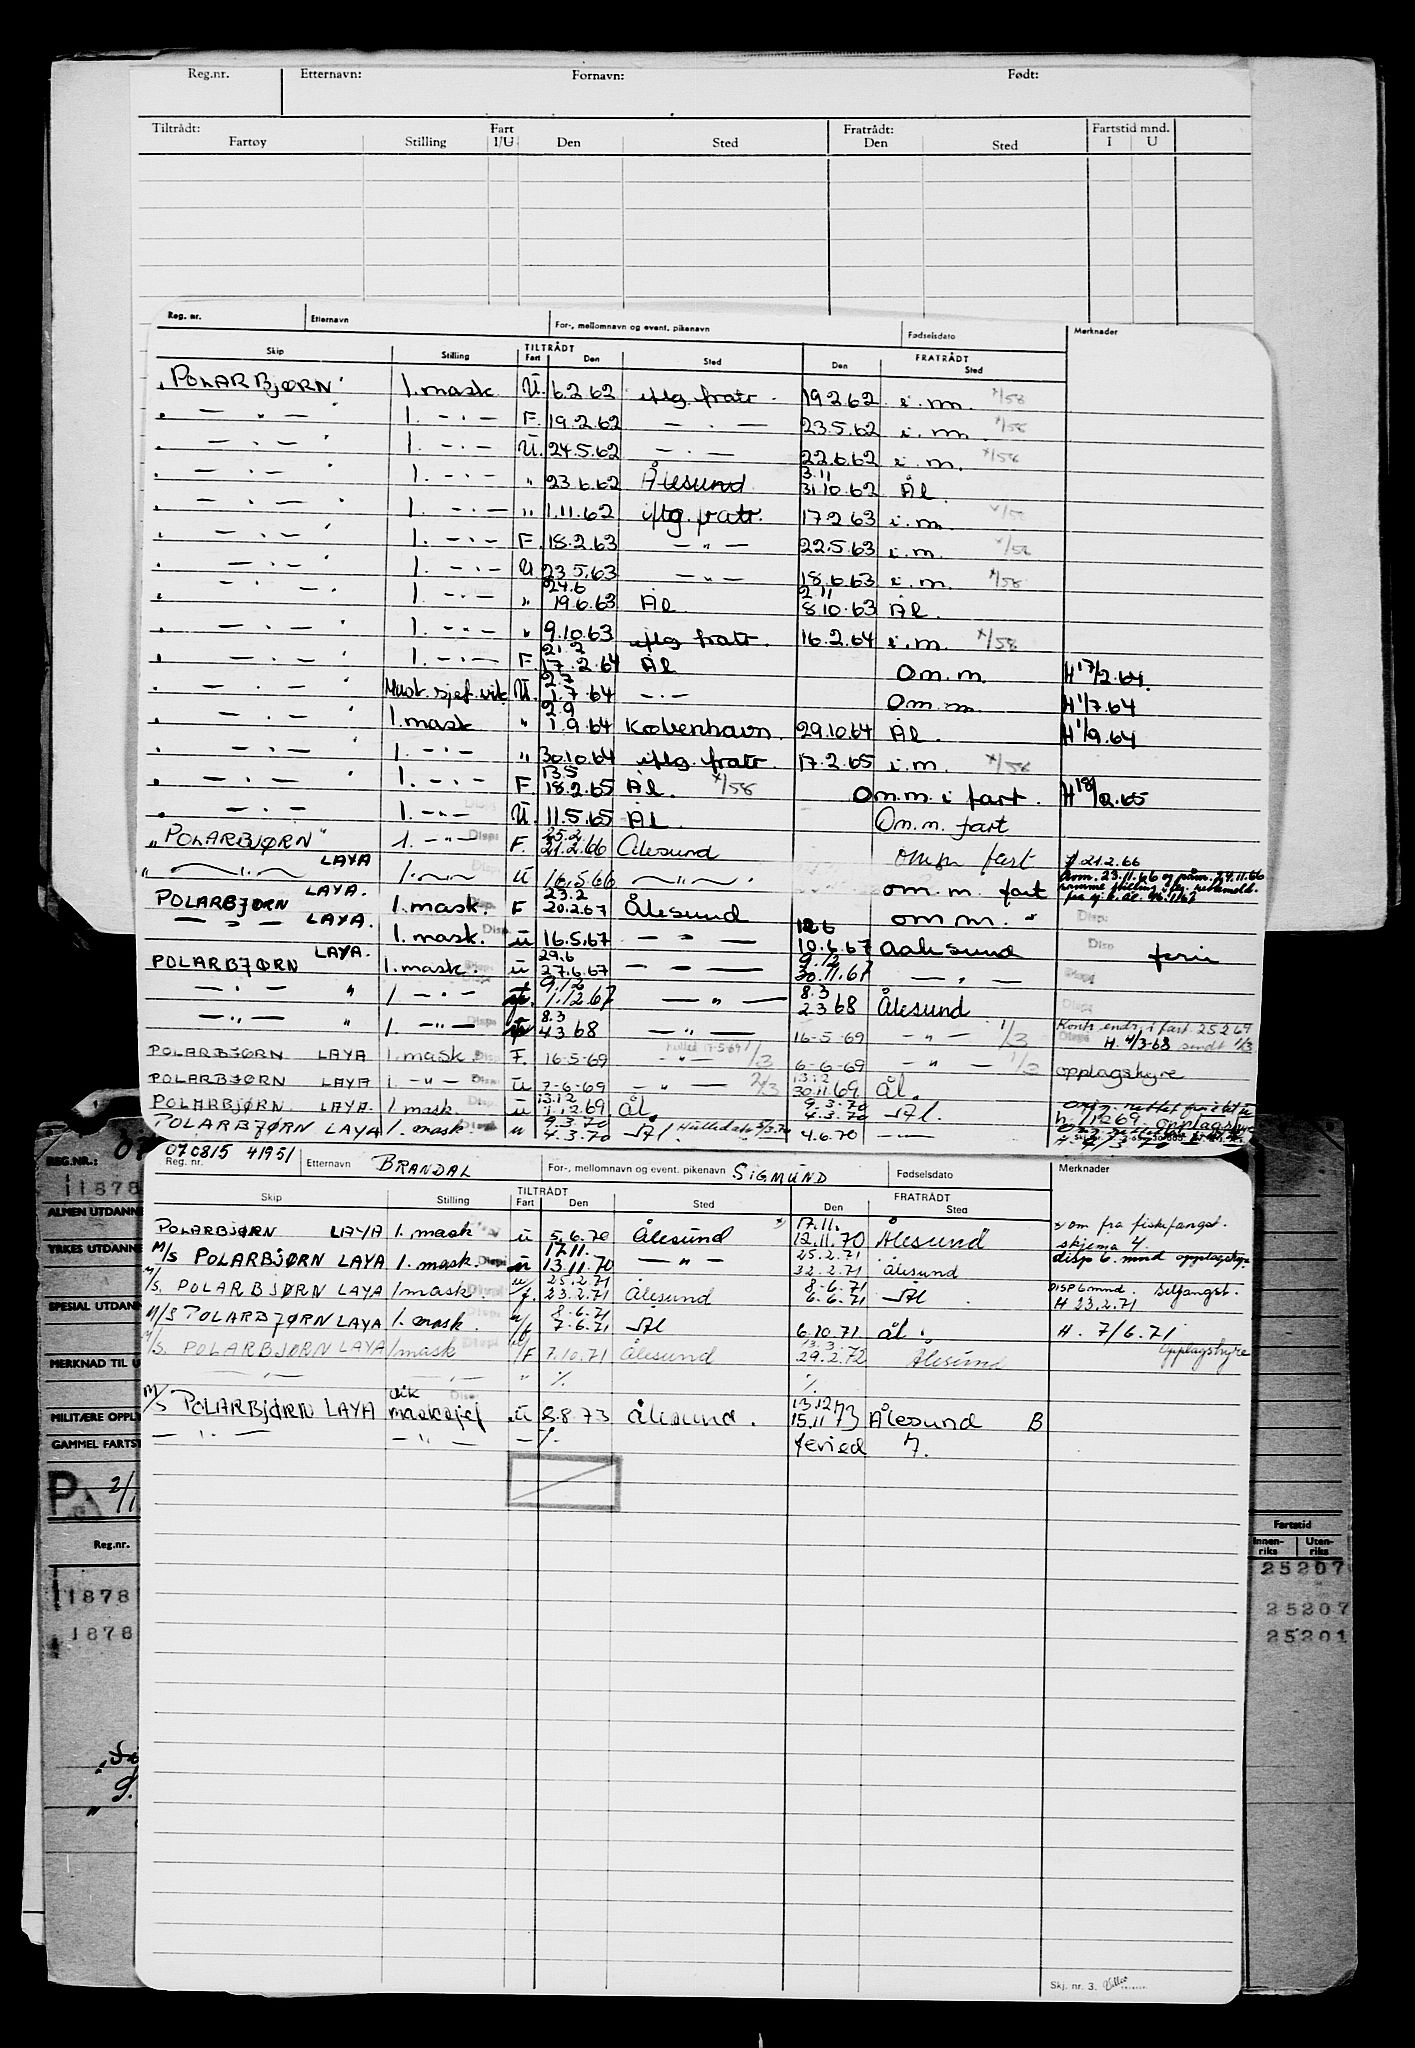 Reg.nr. Etternavn: Fornavn: Født:
Tiltrådt: Fart Fratrådt: Fartstid mnd.
Fartøy Stilling I/U Den Sted Den Sted I U
Reg. nr. Etternavn For-, mellomnavn og event. pikenavn Fødselsdato Merknader
TILTRÅDT FRATRÅDT
Skip Stilling Fart Den Sted Den Sted
"POLARBJØRN" 1. mask. U. 6.2.62 iflg. fratr. 19.2.62 i. m. x/58
" — " — " 1. — " — F. 19.2.62 — " — 23.5.62 i. m. x/58
" — " — " 1. — " — U. 24.5.62 — " — 22.6.62 i. m. x/58
3.11
" — " — " 1. — " — " 23.6.62 Ålesund 31.10.62 Ål.
" — " — " 1. — " — " 1.11.62 iflg. fratr. 17.2.63 i. m. x/58
" — " — " 1. — " — F. 18.2.63 — " — 22.5.63 i. m. x/58
" — " — " 1. — " — U 23.5.63 — " — 18.6.63 i. m. x/58
24.6 2.11
" — " — " 1. — " — " 19.6.63 Ål. 8.10.63 Ål.
" — " — " 1. — " — " 9.10.63 iflg. fratr. 16.2.64 i. m. x/58
21.2
" — " — " 1. — " — F. 17.2.64 Ål Om. m. H 17/2.64.
" — " — " Mask. sjef. vik. U. 1.7.64 — " — Om. m. H 1/7.64
2.9
" — " — " 1. mask " 1.9.64 København. 29.10.64 Ål. H 1/9.64
" — " — " 1. — " — " 30.10.64 iflg. fratr. 17.2.65 i. m. x/58
13.5
" — " — " 1. — " — F. 18.2.65 Ål. x/58 Om. m. i fart. H 18/2.65
" — " — " 1. — " — U. 11.5.65 Ål. Om. m. fart
25.2
"POLARBJØRN" 1. — " — Disp: F. 21.2.66 Ålesund om m fart 21.2.66
LAYA
" — " — 1. — " — U 16.5.66 — " — om. m. fart 23.11.66 og 24.11.66
23.2
POLARBJØRN LAYA. 1. mask. F 20.2.67 Ålesund om m. " Disp:
— " — LAYA. 1. mask. Disp: U 16.5.67 — " — 10.6.67 Aalesund Disp ferie
29.6 9.12
POLARBJØRN LAYA. 1. mask. U 27.6.67 — " — 30.11.67 — " — Disp:
9.12 8.3
— " — " 1 — " — 1.12.67 — " — 2.3.68 Ålesund Disp:
8.3
— " — " 1. — " — 4.3.68 — " — 16-5-69 — " — 1/3 Kontr. endr. i fart 25.2.69
H. 4/3-68 sendt 1/3
POLARBJØRN LAYA 1. mask. F. 16-5-69 — " — 1/3 6-6-69 — " — 1/3 opplagshyre
13.12
POLARBJØRN LAYA 1. — " — U 7-6-69 — " — 2/3 30.11.69 Ål.
13.12 9.3.70
POLARBJØRN. LAYA. 1. mask. U 1.12.69 Ål. 4.3.70 Ål. h. 1/12 69. opplagshyre
9.3.70
POLARBJØRN LAYA 1. mask. U 4.3.70 Ål. 4.6.70 — " — H. 4/3 70
070815 41951
Reg. nr. Etternavn BRANDAL For-, mellomnavn og event. pikenavn SIGMUND Fødselsdato Merknader
TILTRÅDT FRATRÅDT
Skip Stilling Fart Den Sted Den Sted
17.11.
POLARBJØRN LAYA 1. mask U 5.6.70 Ålesund x) 12.11.70 Ålesund x om fra fiskefangst. skjema 4.
17.11. 25.2.71
M/S POLARBJØRN LAYA 1. mask. Disp: U 13.11.70 — " — 22.2.71 Ålesund disp 6. mnd opplagshyre
25.2.71 8-6.71
M/S. POLARBJØRN LAYA 1 mask. U/f. 23.2.71 Ålesund 6.6.71 Ål. DISP 6 mnd. Selfangst.
H 23.2.71
8-6.71
M/S POLARBJØRN LAYA 1. mask. U/f 7-6.71 Ål 6.10.71 ål. H. 7/6.71
13.3
M/S. POLARBJØRN LAYA 1 mask U/F 7.10.71 Ålesund 29.2.72 Ålesund Opplagshyre
— " — — " — " ./. ./.
vik 13.12.73
M/S POLARBJØRN LAYA masksjef Disp: U 8.8.73 Ålesund. 15.11.73 Ålesund B
— " — — " — — ./. feried 7.
REG.NR.: 07
11878
ALMEN UTDANNE
YRKES UTDANNE
SPESIAL UTDAN
MERKNAD TIL U
MILITÆRE OPPL
GAMMEL FARTST
P 2/1
Reg.nr.
11878
1878
Fartstid
Innen-riks Uten-riks
25207
25207
25201
Skj. nr. 3.